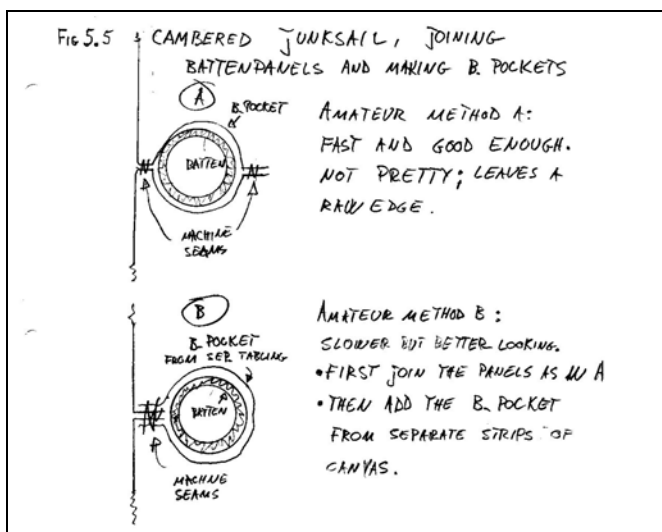 FIG 5.5 CAMBERED JUNKSAIL, JOINING
BATTENPANELS AND MAKING B. POCKETS
A
B. POCKET
BATTEN
MACHINE
SEAMS
AMATEUR METHOD A:
FAST AND GOOD ENOUGH.
NOT PRETTY; LEAVES A
RAW EDGE.
B
B. POCKET
FROM SEP. TABLING
BATTEN
MACHINE
SEAMS
AMATEUR METHOD B:
SLOWER BUT BETTER LOOKING.
•FIRST JOIN THE PANELS AS IN A
•THEN ADD THE B. POCKET
FROM SEPARATE STRIPS OF
CANVAS.